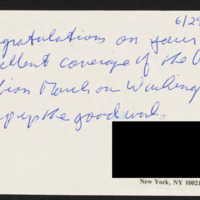 6/29
ngratulations on your
ellent coverage of the
tion March on Washing
ep up the good work.
New York, NY 10021